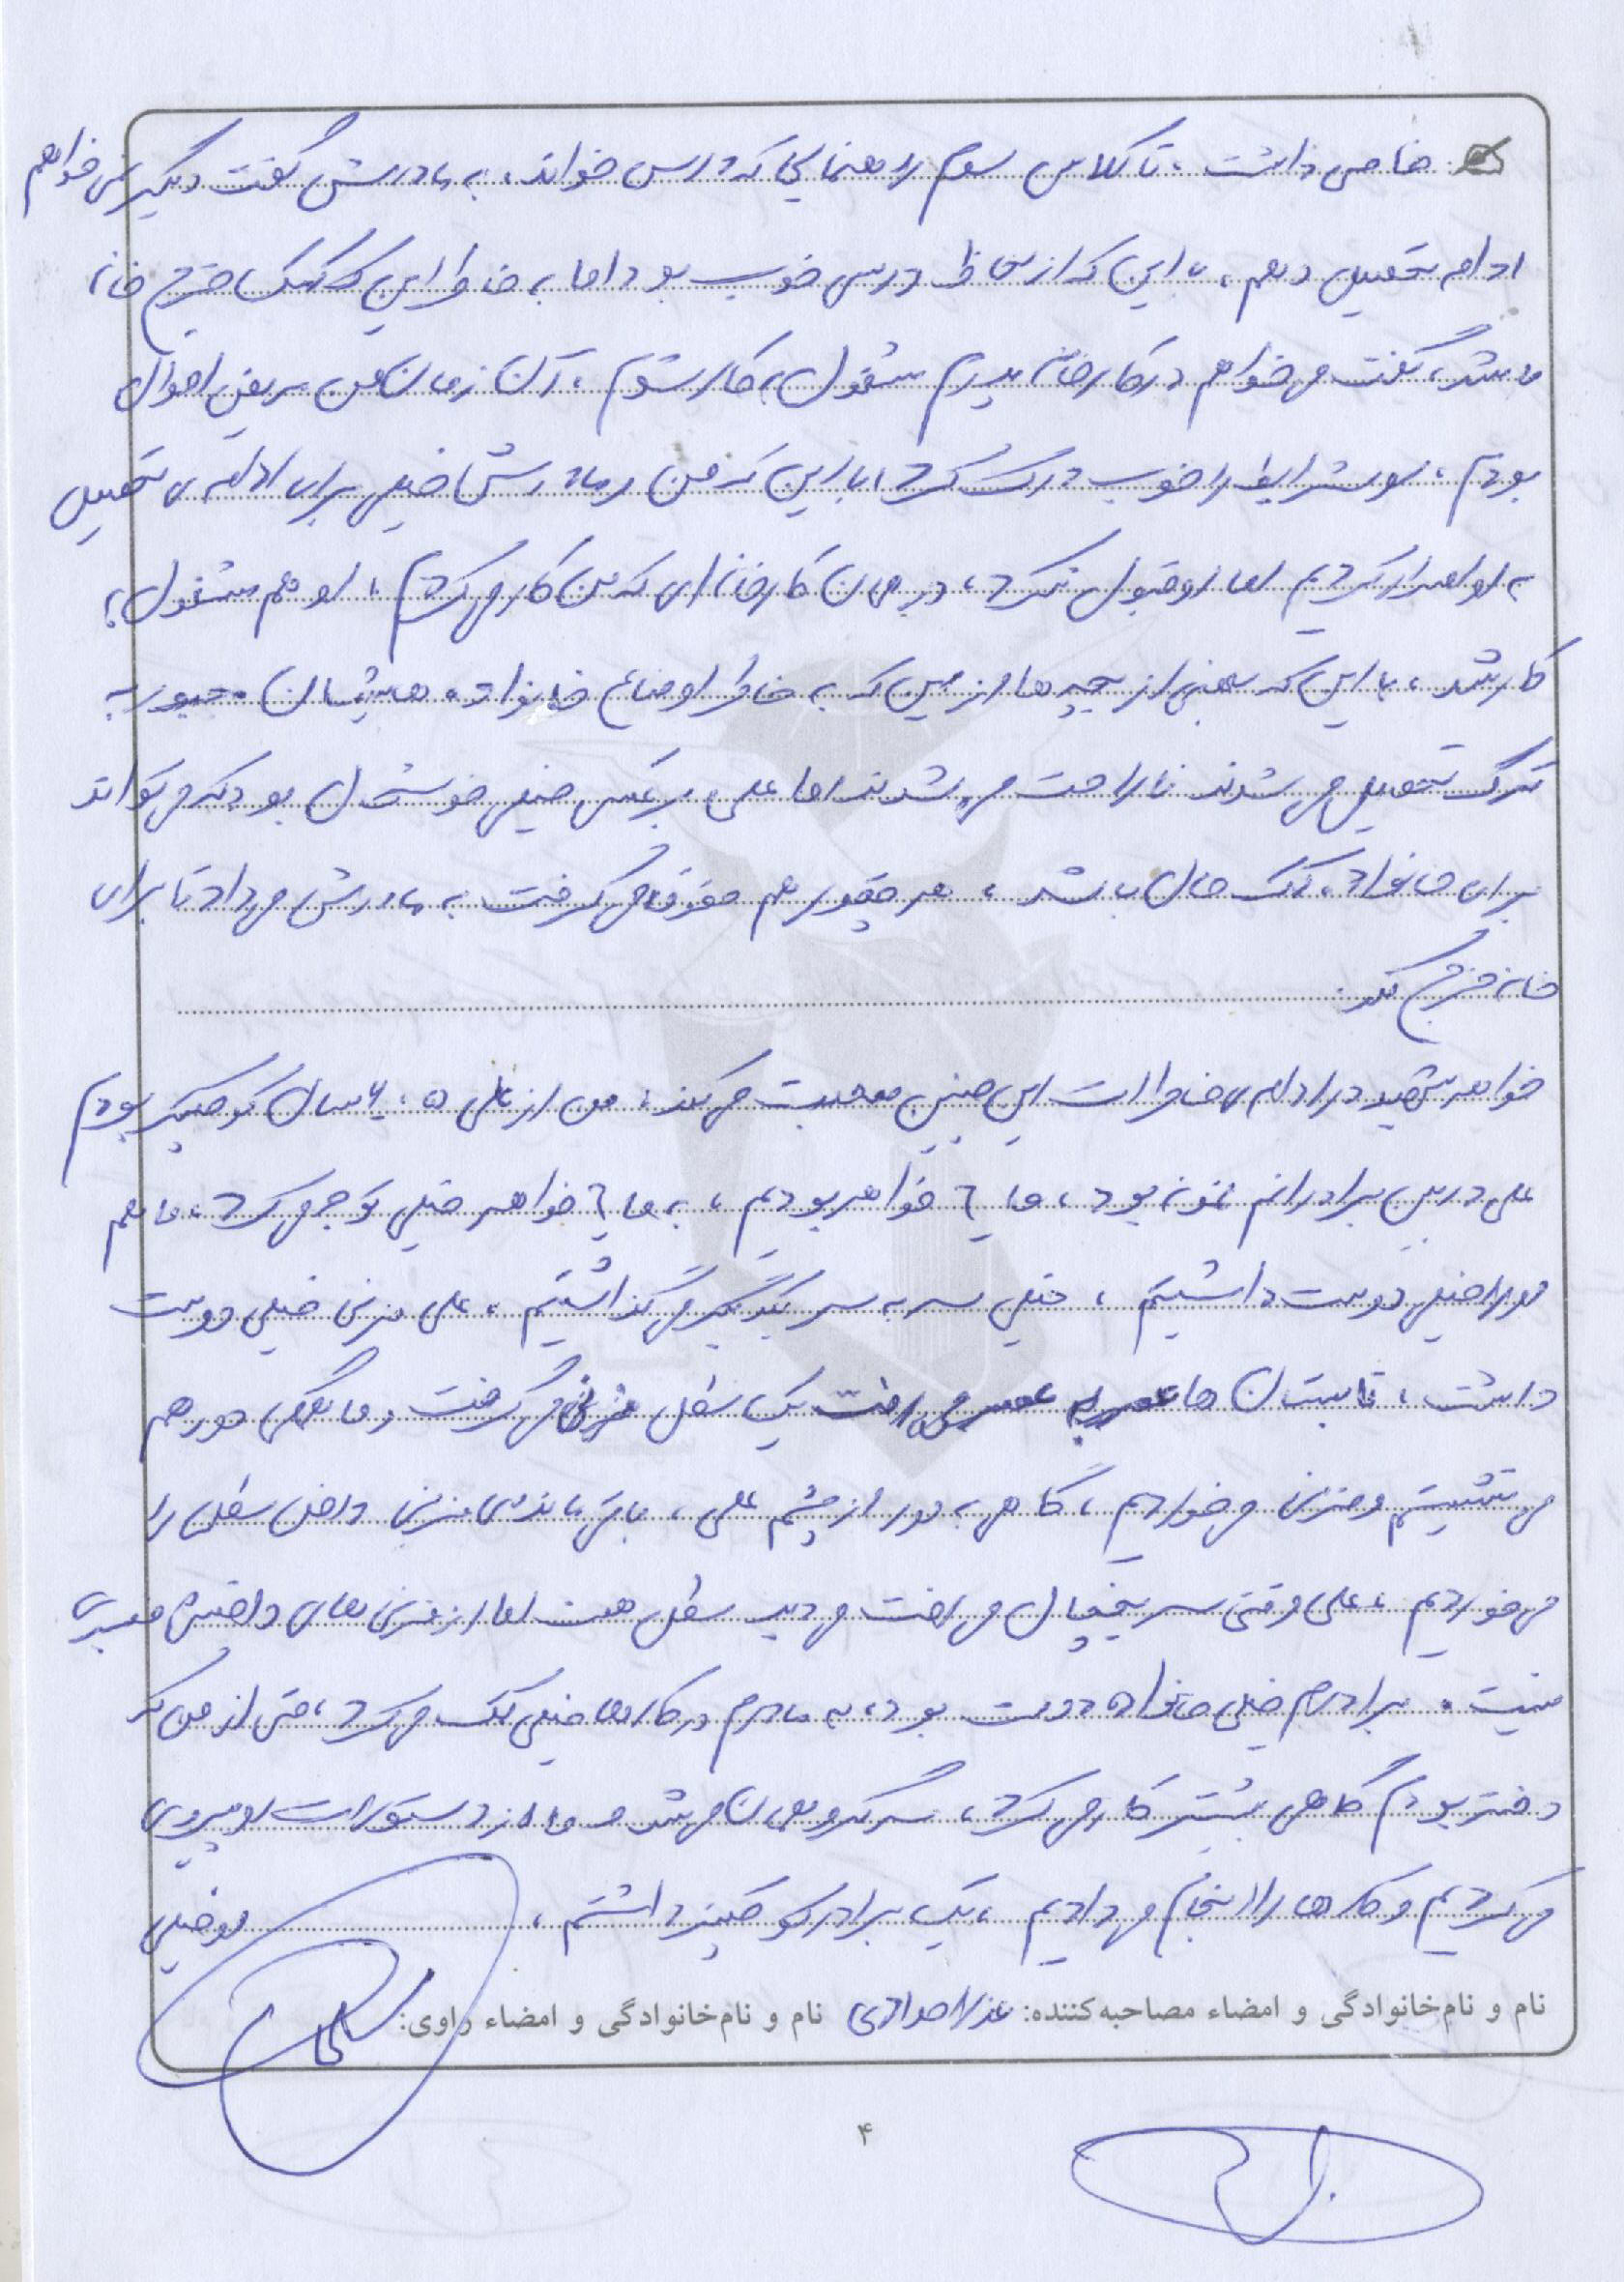 خاصی داشت، تا کلاس سوم راهنمایی که درس خواند، به مادرش گفت دیگر نمی خواهم
ادامه تحصیل دهم، با این که از لحاظ درسی خوب بود اما به خاطر این که کمک خرج خانه
باشد، گفت می خواهم در کارخانه پدرم مشغول به کار شوم، آن زمان من مریض احوال
بودم، او شرایط را خوب درک کرد، با این که من و مادرش خیلی برای ادامه ی تحصیل
به او اصرار کردیم اما او قبول نکرد، در همان کارخانه ای که من کار می کردم، او هم مشغول به
کار شد، با این که بعضی از بچه ها از این که به خاطر اوضاع خانواده هایشان مجبور به
ترک تحصیل می شدند ناراحت می شدند اما علی برعکس خیلی خوشحال بود که می تواند
برای خانواده کمک حال باشد، هر چقدر هم حقوق می گرفت به مادرش می داد تا برای
خانه خرج کند.
خواهر شهید در ادامه ی خاطرات این چنین صحبت می کند: من از علی ۵، ۶ سال کوچکتر بودم
علی در بین برادرانم نمونه بود، ما ۲ خواهر بودیم، به ما ۲ خواهر خیلی توجه می کرد، ما هم
او را خیلی دوست داشتیم، خیلی سر به سر یکدیگر می گذاشتیم، علی بزنی خیلی دوست
داشت، تابستان ها عصر به عصر می رفت یک سطل بستنی می گرفت و ما همگی دور هم
می نشستیم و بستنی می خوردیم، گاهی به دور از چشم علی، باقی مانده ی بستنی داخل سطل را
می خوردیم، علی وقتی سر یخچال می رفت می دید سطل هست اما از بستنی های داخلش خبری
نیست. برادرم خیلی خانواده دوست بود، به مادرم در کارها خیلی کمک می کرد، حتی از من که
دختر بودم گاهی بیشتر کار می کرد، سرگروهمان می شد و ما از دستورات او پیروی
می کردیم و کارها را انجام می دادیم، یک برادر کوچکتر داشتم، او خیلی
نام و نام‌خانوادگی و امضاء مصاحبه‌کننده: نام و نام‌خانوادگی و امضاء راوی:
۴